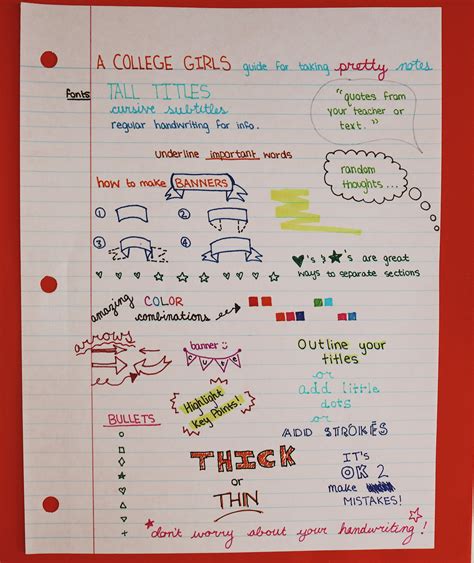 A COLLEGE GIRLS guide for taking pretty notes
fonts
TALL TITLES
cursive subtitles
regular handwriting for info.
"quotes from
your teacher or
text."
underline important words
random
thoughts...
how to make BANNERS
1 2
3 4
♥'s & ★'s are great
ways to separate sections
amazing COLOR
combinations
arrows
banner :)
CUTE
Outline your
titles
or
add little
dots
or
ADD STROKES
Highlight
Key Points!
BULLETS
THICK
or
THIN
IT'S
OK 2
make
MISTAKES!
don't worry about your handwriting!